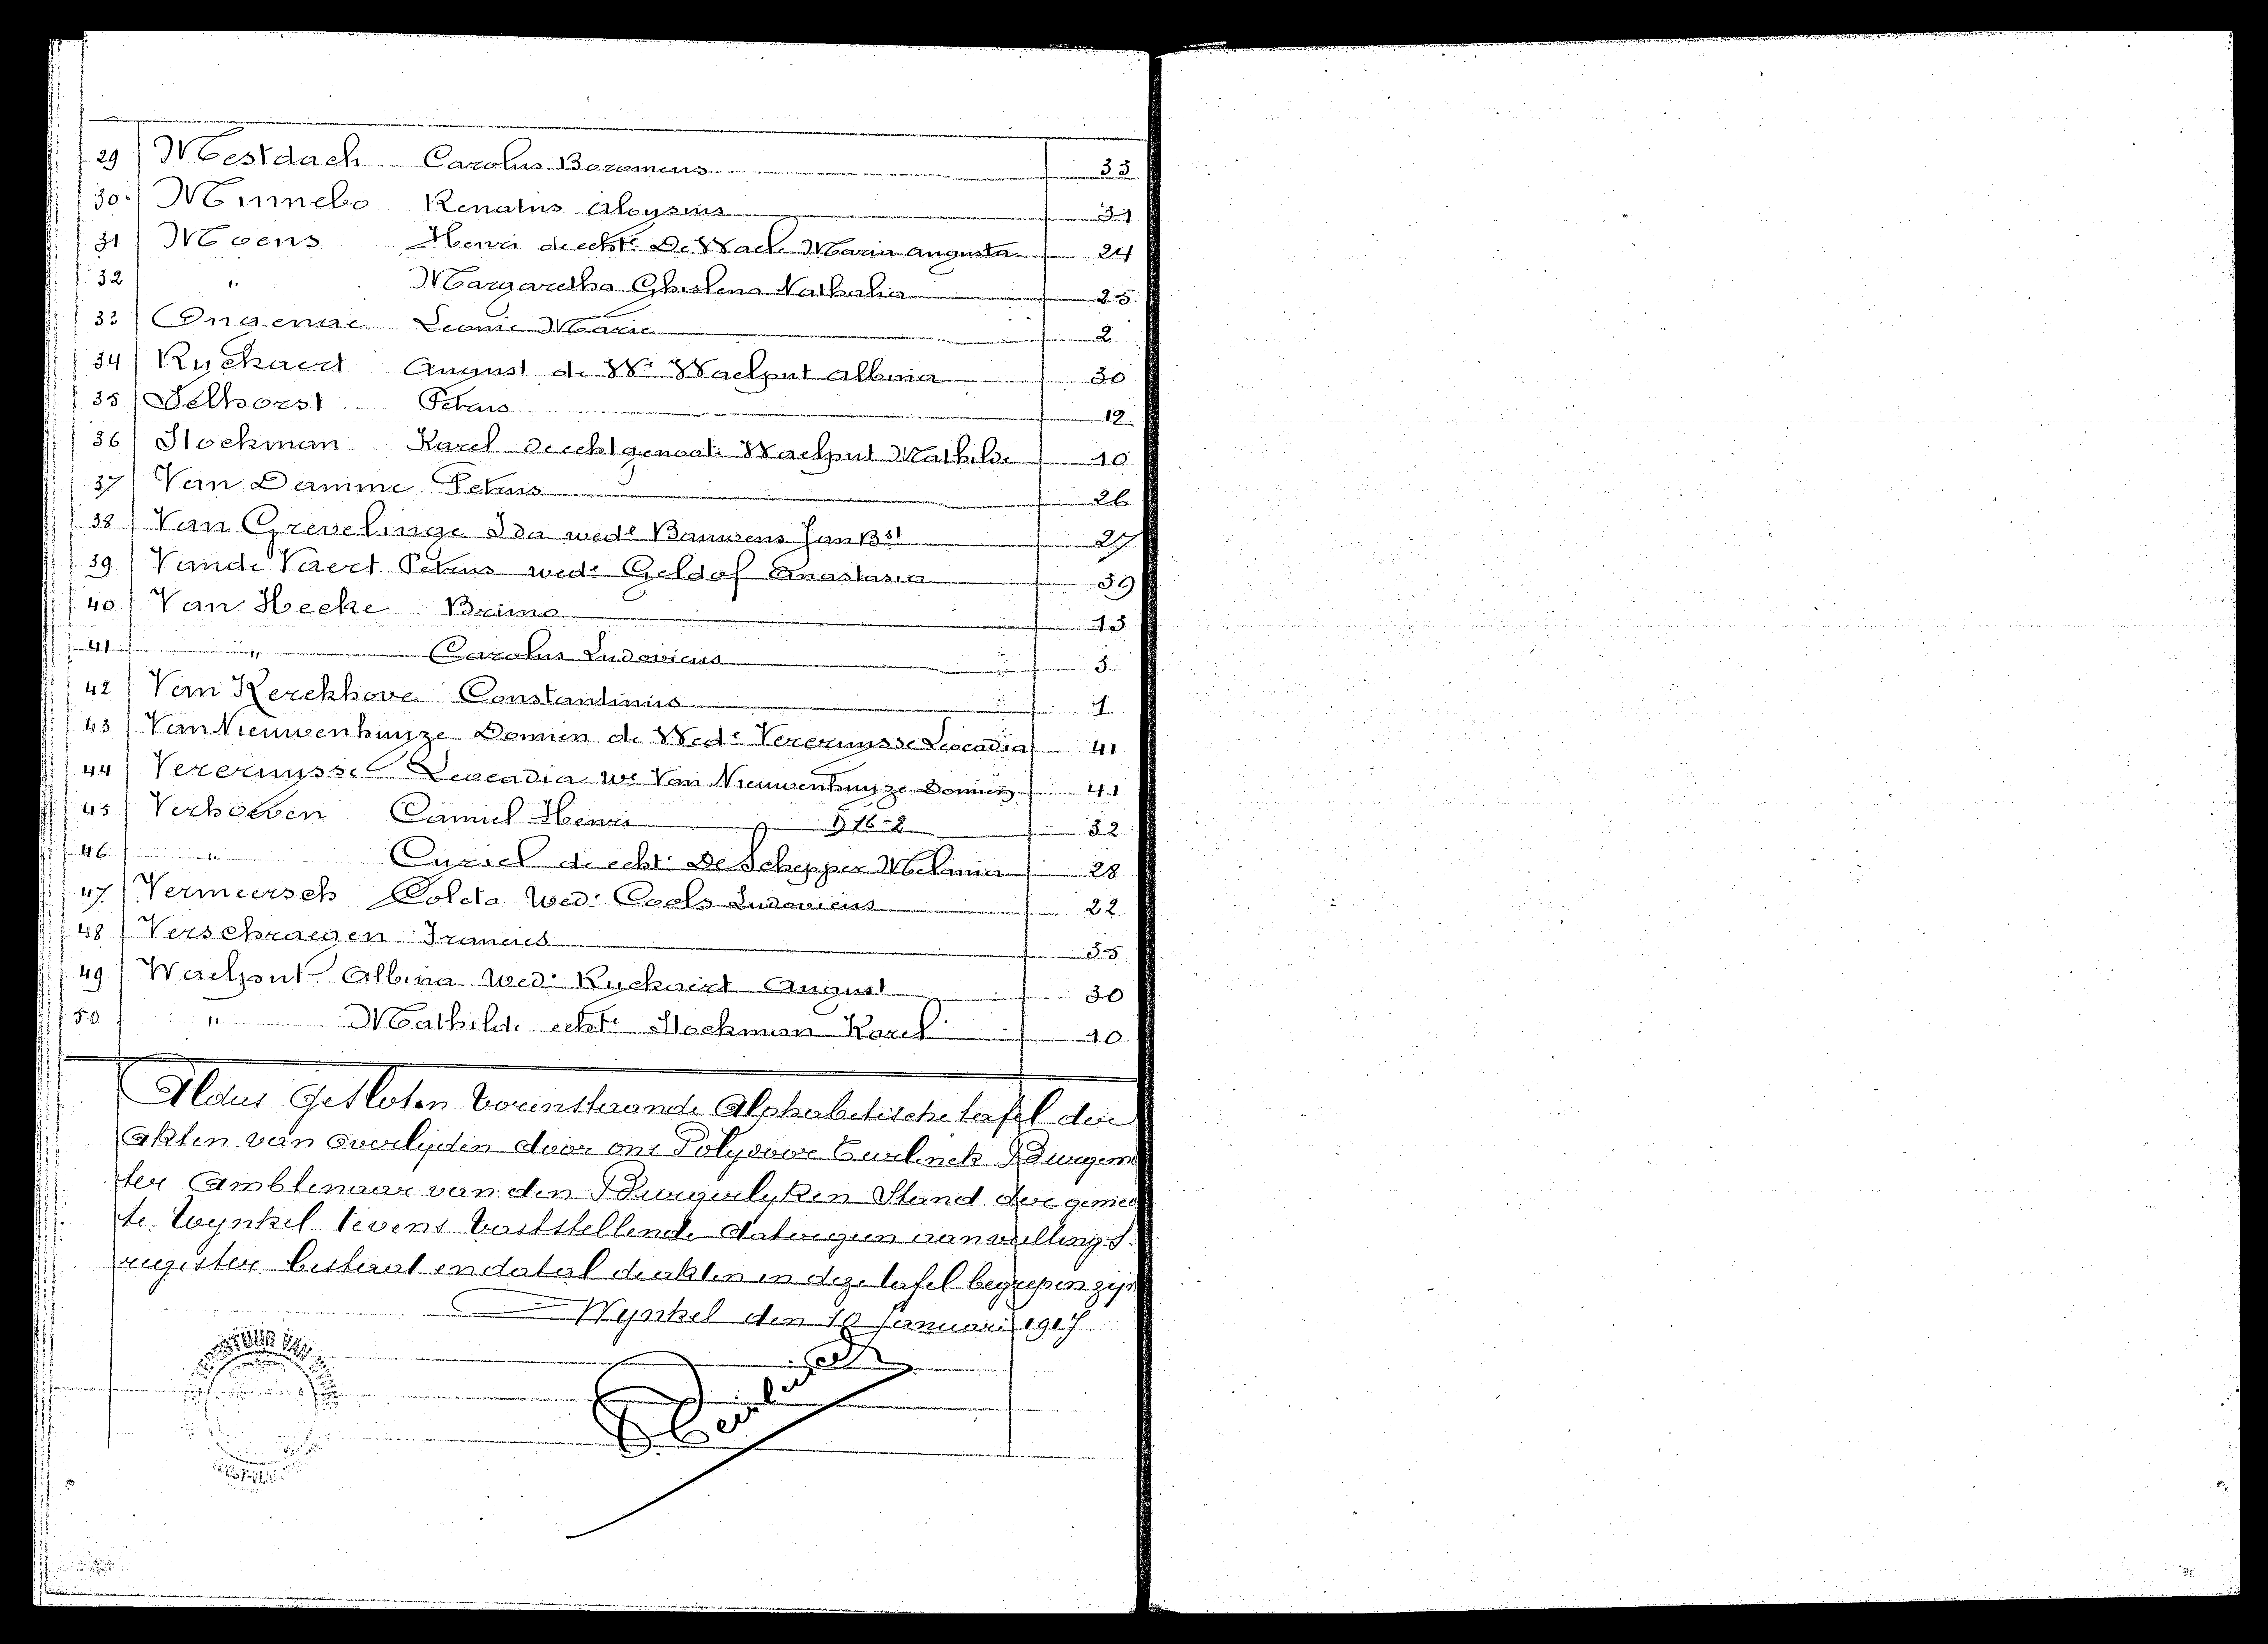 29 Mestdach Carolus Boromeus 33
30 Minnebo Renatus Aloysius 31
31 Moens Henri de echte De Waele Maria Augusta 24
32 " Margaretha Ghislena Nathalia 25
33 Ongenae Leonie Marie 2
34 Ryckaert August de We Waelput Albina 30
35 Selhorst Petrus 12
36 Stockman Karel de echtgenoote Waelput Mathilde 10
37 Van Damme Petrus 26
38 Van Grevelinge Ida wede Bauwens Jan Bst 27
39 Vande Vaert Petrus wede Geldof Anastasia 39
40 Van Hecke Primo 13
41 " Carolus Ludovicus 3
42 Van Kerckhove Constantinus 1
43 Van Nieuwenhuyze Domien de Wede Vercruysse Leocadia 41
44 Vercruysse Leocadia We Van Nieuwenhuyze Domien 41
45 Verhoeven Camiel Henri 32
46 " Cyriel de echte De Schepper Melania 28
47 Vermeersch Coleta Wed: Cools Ludovicus 22
48 Verschraegen Francies 35
49 Waelput Albina Wede Ryckaert August 30
50 " Mathilde echte Stockman Karel 10
Aldus Gesloten Vorenstaande Alphabetische tafel der
akten van overlijden door ons Polydoor Burgem
ter Ambtenaar van den Burgerlyken Stand der gemee
te Wynkel tevens vaststellende dat er geen aanvullings
register bestaat en dat al de akten in deze tafel begrepen zijn
Wynkel den 10 Januari 1917.